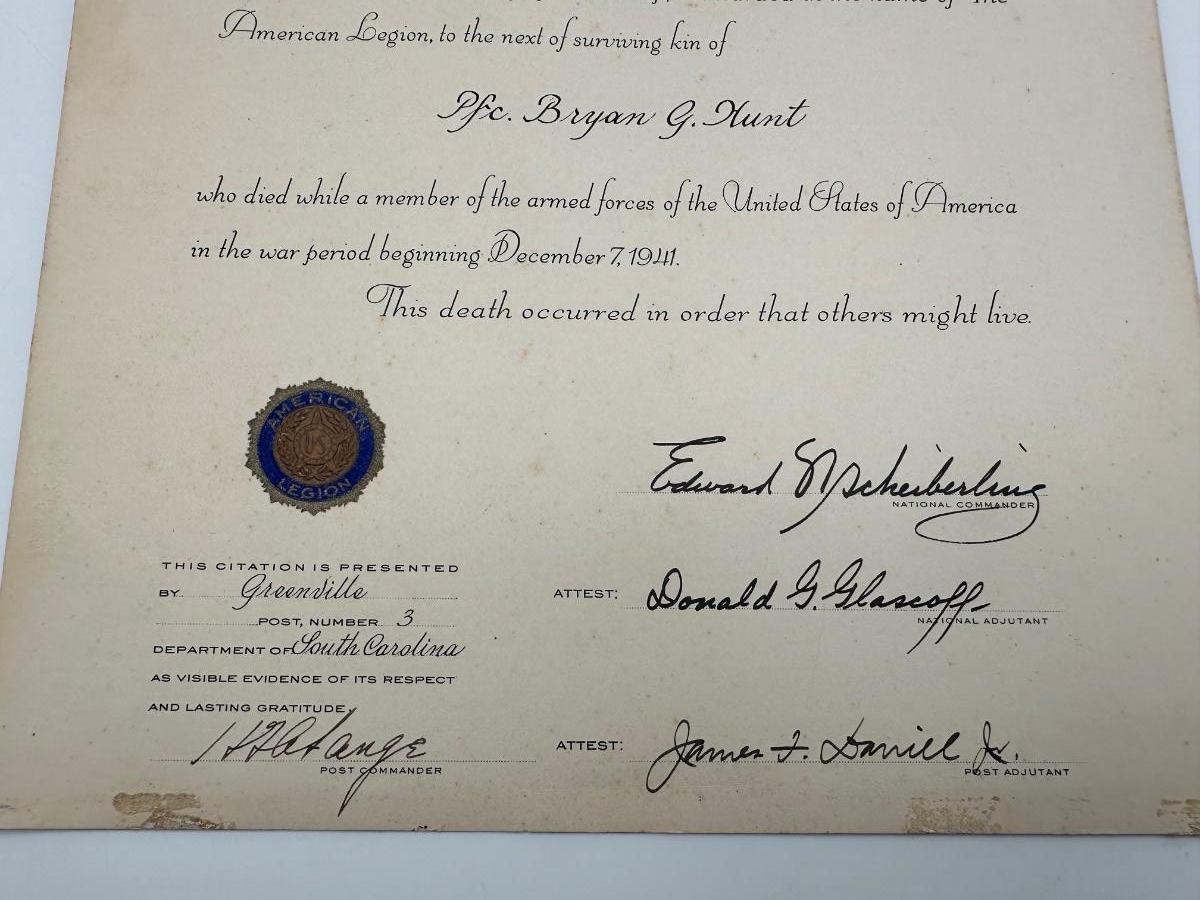 awarded in the name of The
American Legion, to the next of surviving kin of
Pfc. Bryan G. Hunt
who died while a member of the armed forces of the United States of America
in the war period beginning December 7, 1941.
This death occurred in order that others might live.
AMERICAN
US
LEGION
Edward N Scheiberling
NATIONAL COMMANDER
THIS CITATION IS PRESENTED
BY Greenville
POST, NUMBER 3
DEPARTMENT OF South Carolina
AS VISIBLE EVIDENCE OF ITS RESPECT
AND LASTING GRATITUDE.
POST COMMANDER
ATTEST: Donald G. Glascoff
NATIONAL ADJUTANT
ATTEST: James F. Daniell Jr.
POST ADJUTANT